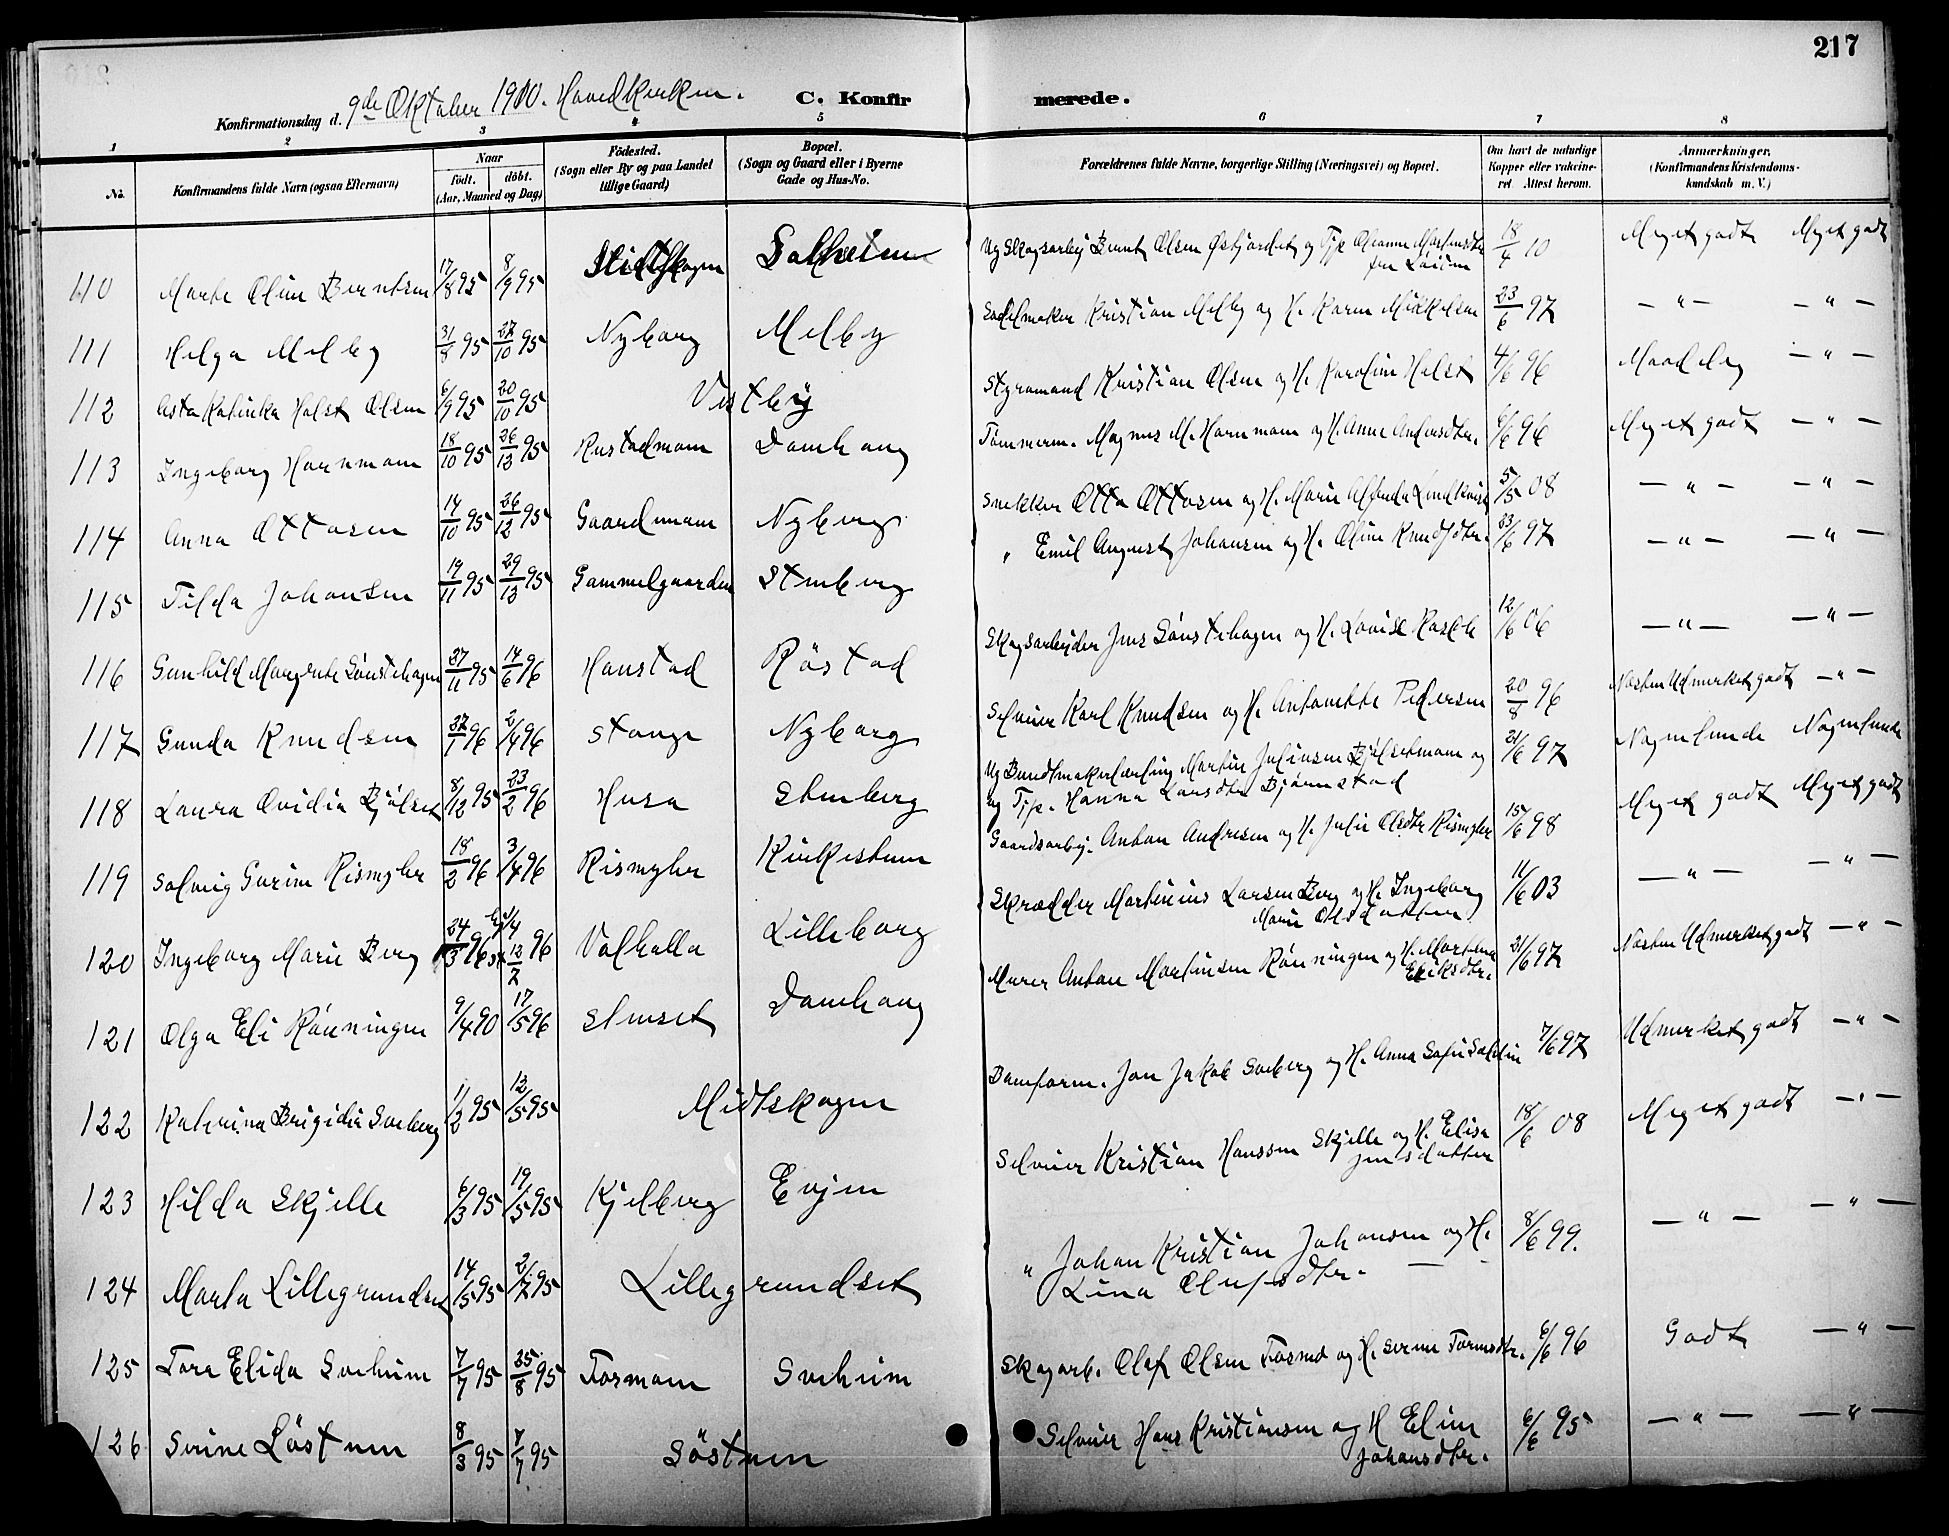 217
Konfirmationsdag d. 9de Oktober 1910. Hovedkirken. C. Konfirmerede.
1 2 3 4 5 6 7 8
No. Konfirmandens fulde Navn (ogsaa Efternavn) Naar født. døbt. (Aar, Maaned og Dag) Fødested. (Sogn eller By og paa Landet tillige Gaard) Bopæl. (Sogn og Gaard eller i Byerne Gade og Hus-No. Forældrenes fulde Navne, borgerlige Stilling (Næringsvei) og Bopæl. Om havt de naturlige Kopper eller vaccineret. Attest herom. Anmærkninger. (Konfirmandens Kristendomskundskab m. V.)
110 Marte Oline Berntsen 17/8 95 8/9 95 Midtskogen Solheim Ug Skogsarbej Bernt Olsen og Tjp Oleanne 18/4 10 Meget godt Meget godt
111 Helga Melby 31/8 95 27/10 95 Nyborg Melby Sadelmaker Kristian Melby og H. Karen Mikkelsen 23/6 97 — " — — " —
112 Asta Katinka Holst Olsen 6/9 95 20/10 95 Vestby Styrmand Kristian Olsen og H. Karoline Holst 4/6 96 Maadelig — " —
113 Ingeborg Hornmoen 18/10 95 26/12 95 Rustadmoen Damhaug Tømmerm. Magnus M. Hornmoen og H. Anne Andersdtr. 6/6 96 Meget godt — " —
114 Anna Ottosen 14/10 95 26/12 95 Gaardmoen Nyberg Snekker Otto Ottosen og H. Marie Lindkvist 5/5 08 — " — — " —
115 Tilda Johansen 19/11 95 29/12 95 Gammelgaarden Stenberg " Emil August Johansen og H. Oline Knudsdtr. 23/6 97 — " — — " —
116 Gunhild Margrete Sønstehagen 27/11 95 14/6 96 Hanstad Røstad Skogsarbeider Jens Sønstehagen og H. Lovise 12/6 06 — " — — " —
117 Gunda Knudsen 27/1 96 2/4 96 Stange Nyborg Selveier Karl Knudsen og H. Antonette Pedersen 20/8 96 Næsten Udmerket godt — " —
118 Laura Ovidia Bjølset 8/12 95 23/2 96 Husa Stenberg Ug Martin Juliusen og
og Tjp. Hanna Larsdtr Bjørnstad 21/6 97 Nogenlunde Nogenlunde
119 Solveig Gurine Rismyhr 18/2 96 3/4 96 Rismyhr Kirkestuen Gaardsarbej. Anton Andresen og H. Julie Olsdtr Rismyhr 15/6 98 Meget godt Meget godt
120 Ingeborg Marie Berg 24/3 96 12/7 96 Valhalla Lilleborg Skrædder Martinius Larsen Berg og H. Ingeborg
Marie Olsdatter 11/6 03 — " — — " —
121 Olga Eli Rønningen 9/4 90 17/5 96 Stenset Damhaug Murer Anton Martinsen Rønningen og H.
Eriksdtr. 21/6 97 Næsten Udmerket godt — " —
122 Katrina Brigidie Soeberg 1/2 95 12/5 95 Midtskogen Damform. Jon Jakob Soeberg og H. Anna Sofie 7/6 97 Udmerket godt — " —
123 Hilda Skjelle 6/3 95 19/5 95 Kjelberg Evjen Selveier Kristian Hanssen Skjelle og H. Elise
Jensdatter 18/6 08 Meget godt — " —
124 Marta Lillegrundset 14/5 95 2/7 95 Lillegrundset " Johan Kristian Johansen og H.
Lina Olufsdtr. 8/6 99. — " — — " —
125 Tora Elida Soeheim 7/7 95 25/8 95 Tormoen Soeheim Skogarb. Olaf Olsen og H. Serine 6/6 96 Godt — " —
126 Serine Løstuen 8/3 95 7/7 95 Søstuen Selveier Hans Kristiansen og H Eline
Johansdtr. 6/6 95 — " — — " —